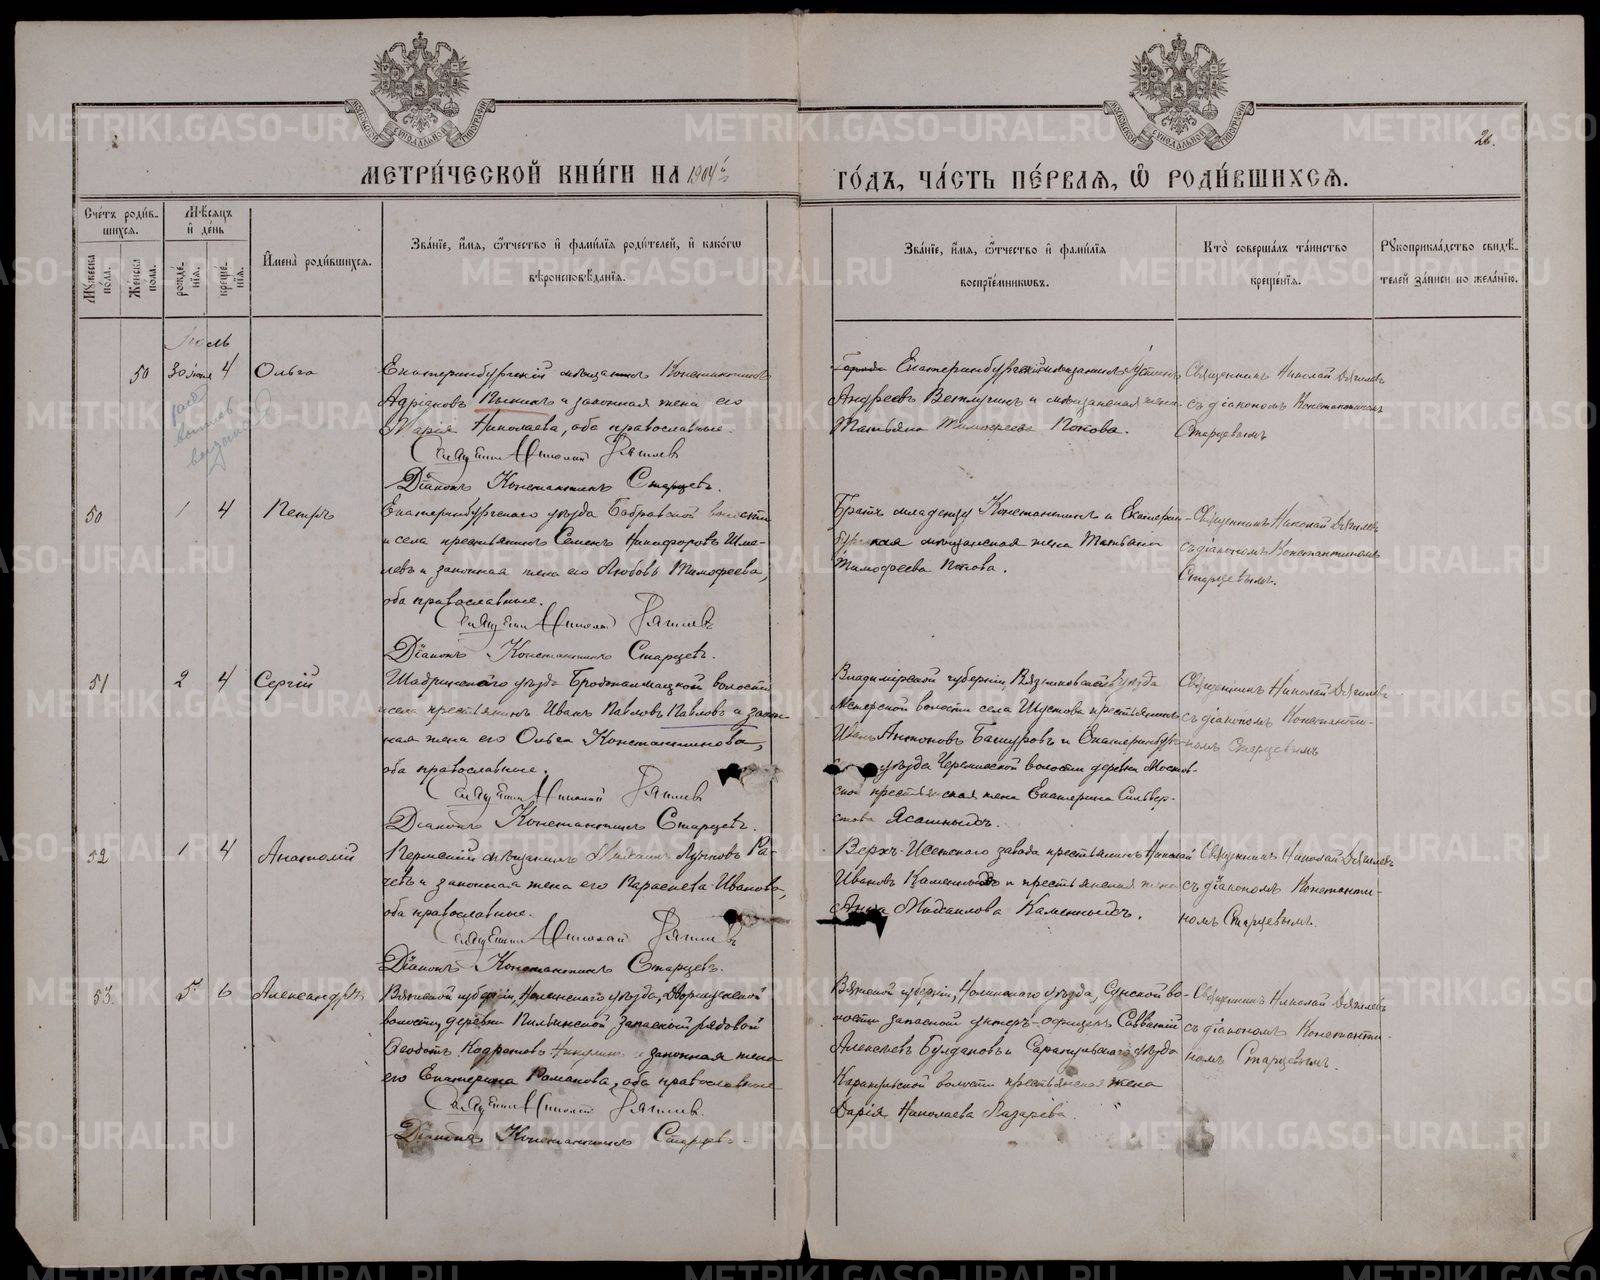 26.
МЕТРИ́ЧЕСКОЙ КНИ́ГИ НА 1904 й
ГО́ДЪ, ЧА́СТЬ ПЕ́РВАЯ, Ѡ҆ РОДИ́ВШИХСЯ.
Сче́тъ роди́в-
шихся.
Мѣсяцъ
и҆ де́нь
Му́жеска
по́ла.
Же́нска
по́ла.
рожде́-
нїя.
креще́-
нїя.
И҆мена̀ роди́вшихся.
Зва́нїе, и҆́мя, ѻ҆́тчество и҆ фами́лїя роди́телей, и҆ како́гѡ
вѣроисповѣ́данїя.
Зва́нїе, и҆́мя, ѻ҆́тчество и҆ фами́лїя
воспрїе́мникѡвъ.
Кто̀ соверша́лъ та́инство
креще́нїя.
Рукоприкла́дство свидѣ́-
телей за́писи по жела́нїю.
Іюль
50 30 іюня 4 Ольга
Екатеринбургскій мѣщанинъ Константинъ
Адріановъ и законная жена его
Марія Николаева, оба православные.
Священникъ Николай Дягилев
Діаконъ Константинъ Старцевъ.
Екатеринбургскій мѣщанинъ Устинъ
Андреевъ Ветлугинъ и мѣщанская жена
Татьяна Тимофеева Попова.
Священникъ Николай Дягилевъ
съ діакономъ Константиномъ
Старцевымъ
50 1 4 Петръ
Екатеринбургскаго уѣзда Бобровской волости
и села крестьянинъ Семенъ Никифоровъ Шме-
левъ и законная жена его Любовь Тимофеева,
оба православные.
Священникъ Николай Дягилевъ
Діаконъ Константинъ Старцевъ.
Братъ младенцу Константинъ и Екатерин-
бургская мѣщанская жена Татьяна
Тимофеева Попова.
Священникъ Николай Дягилевъ
съ діакономъ Константиномъ
Старцевымъ.
51 2 4 Сергій
Шадринскаго уѣзда Бродокалмацкой волости
и села крестьянинъ Иванъ Павловъ Павловъ и закон-
ная жена его Ольга Константинова,
оба православные.
Священникъ Николай Дягилев
Діаконъ Константинъ Старцевъ.
Владимірской губерніи, Вязниковскаго уѣзда
волости села крестьянинъ
Иванъ Антоновъ Башуровъ и Екатеринбург-
уѣзда волости деревни Мостов-
ской крестьянская жена Екатерина Сильвер-
стова Ясашныхъ.
Священникъ Николай Дягилевъ
съ діакономъ Константи-
номъ Старцевымъ
52 1 4 Анатолій
Пермскій мѣщанинъ Михаилъ Ра-
евъ и законная жена его Параскева Иванова,
оба православные.
Священникъ Николай Дягилевъ
Діаконъ Константинъ Старцевъ.
Верхъ-Исетскаго завода крестьянинъ Николай
Ивановъ Каменныхъ и крестьянская жена
Анна Михаилова Каменныхъ.
Священникъ Николай Дягилевъ
съ діакономъ Константи-
номъ Старцевымъ.
53. 5 6 Александръ
Вятской губерніи, Нолинскаго уѣзда,
волости, деревни запасной рядовой
Феодотъ и законная жена
его Екатерина Романова, оба православные
Священникъ Николай Дягилев.
Діаконъ Константинъ Старцевъ.
Вятской губерніи, Нолинскаго уѣзда, Сунской во-
лости запасной унтеръ-офицеръ Савватій
Алексѣевъ Булдаковъ и Сарапульскаго уѣзда
волости крестьянская жена
Дарія Николаева Лазарева.
Священникъ Николай Дягилевъ
съ діакономъ Константи-
номъ Старцевымъ.
METRIKI.GASO-URAL.RU